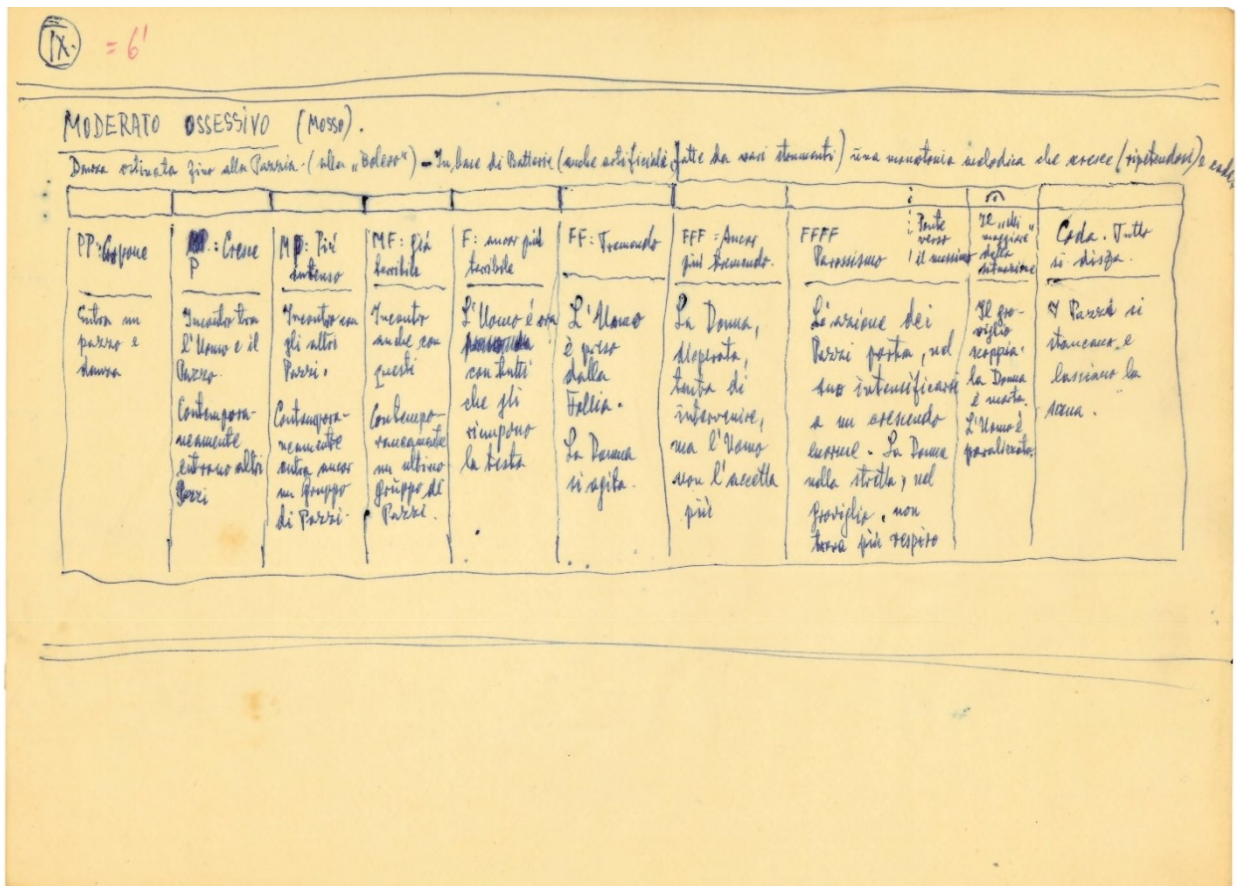 IX. = 6'
MODERATO OSSESSIVO (Mosso).
Danza ostinata fino alla Pazzia - (alla „Bolero") - In base di Batterie (anche artificiale, fatte da vari strumenti) una monotonia melodica che cresce (ripetendosi) e
PP: Espone
P : Cresce
MP: Piú
intenso
MF: Giá
terribile
F: ancor piú
terribile
FF: Tremendo
FFF = Ancor
piú tremendo.
FFFF
Parossismo
Ponte
verso
il massimo
maggiore"
della
situazione
Coda. Tutto
si disfa.
Entra un
pazzo e
danza
Incontro tra
l'Uomo e il
Pazzo.
Contempora-
neamente
entrano altri
Pazzi
Incontro con
gli altri
Pazzi.
Contempora-
neamente
entra ancor
un Gruppo
di Pazzi.
Incontro
anche con
questi
Contempo-
raneamente
un ultimo
gruppo di
Pazzi.
L'Uomo é ora
con tutti
che gli
riempono
la testa
L'Uomo
è preso
dalla
Follia.
La Donna
si agita.
La Donna,
disperata,
tenta di
intervenire,
ma l'Uomo
non l'accetta
piú
L'azione dei
Pazzi porta, nel
suo intensificarsi
a un crescendo
enorme. La Donna
nella stretta, nel
Groviglio, non
trova piú respiro
Il gro-
viglio
scoppia:
la Donna
é morta.
L'Uomo é
paralizzato.
I Pazzi si
stancano e
lasciano la
scena.